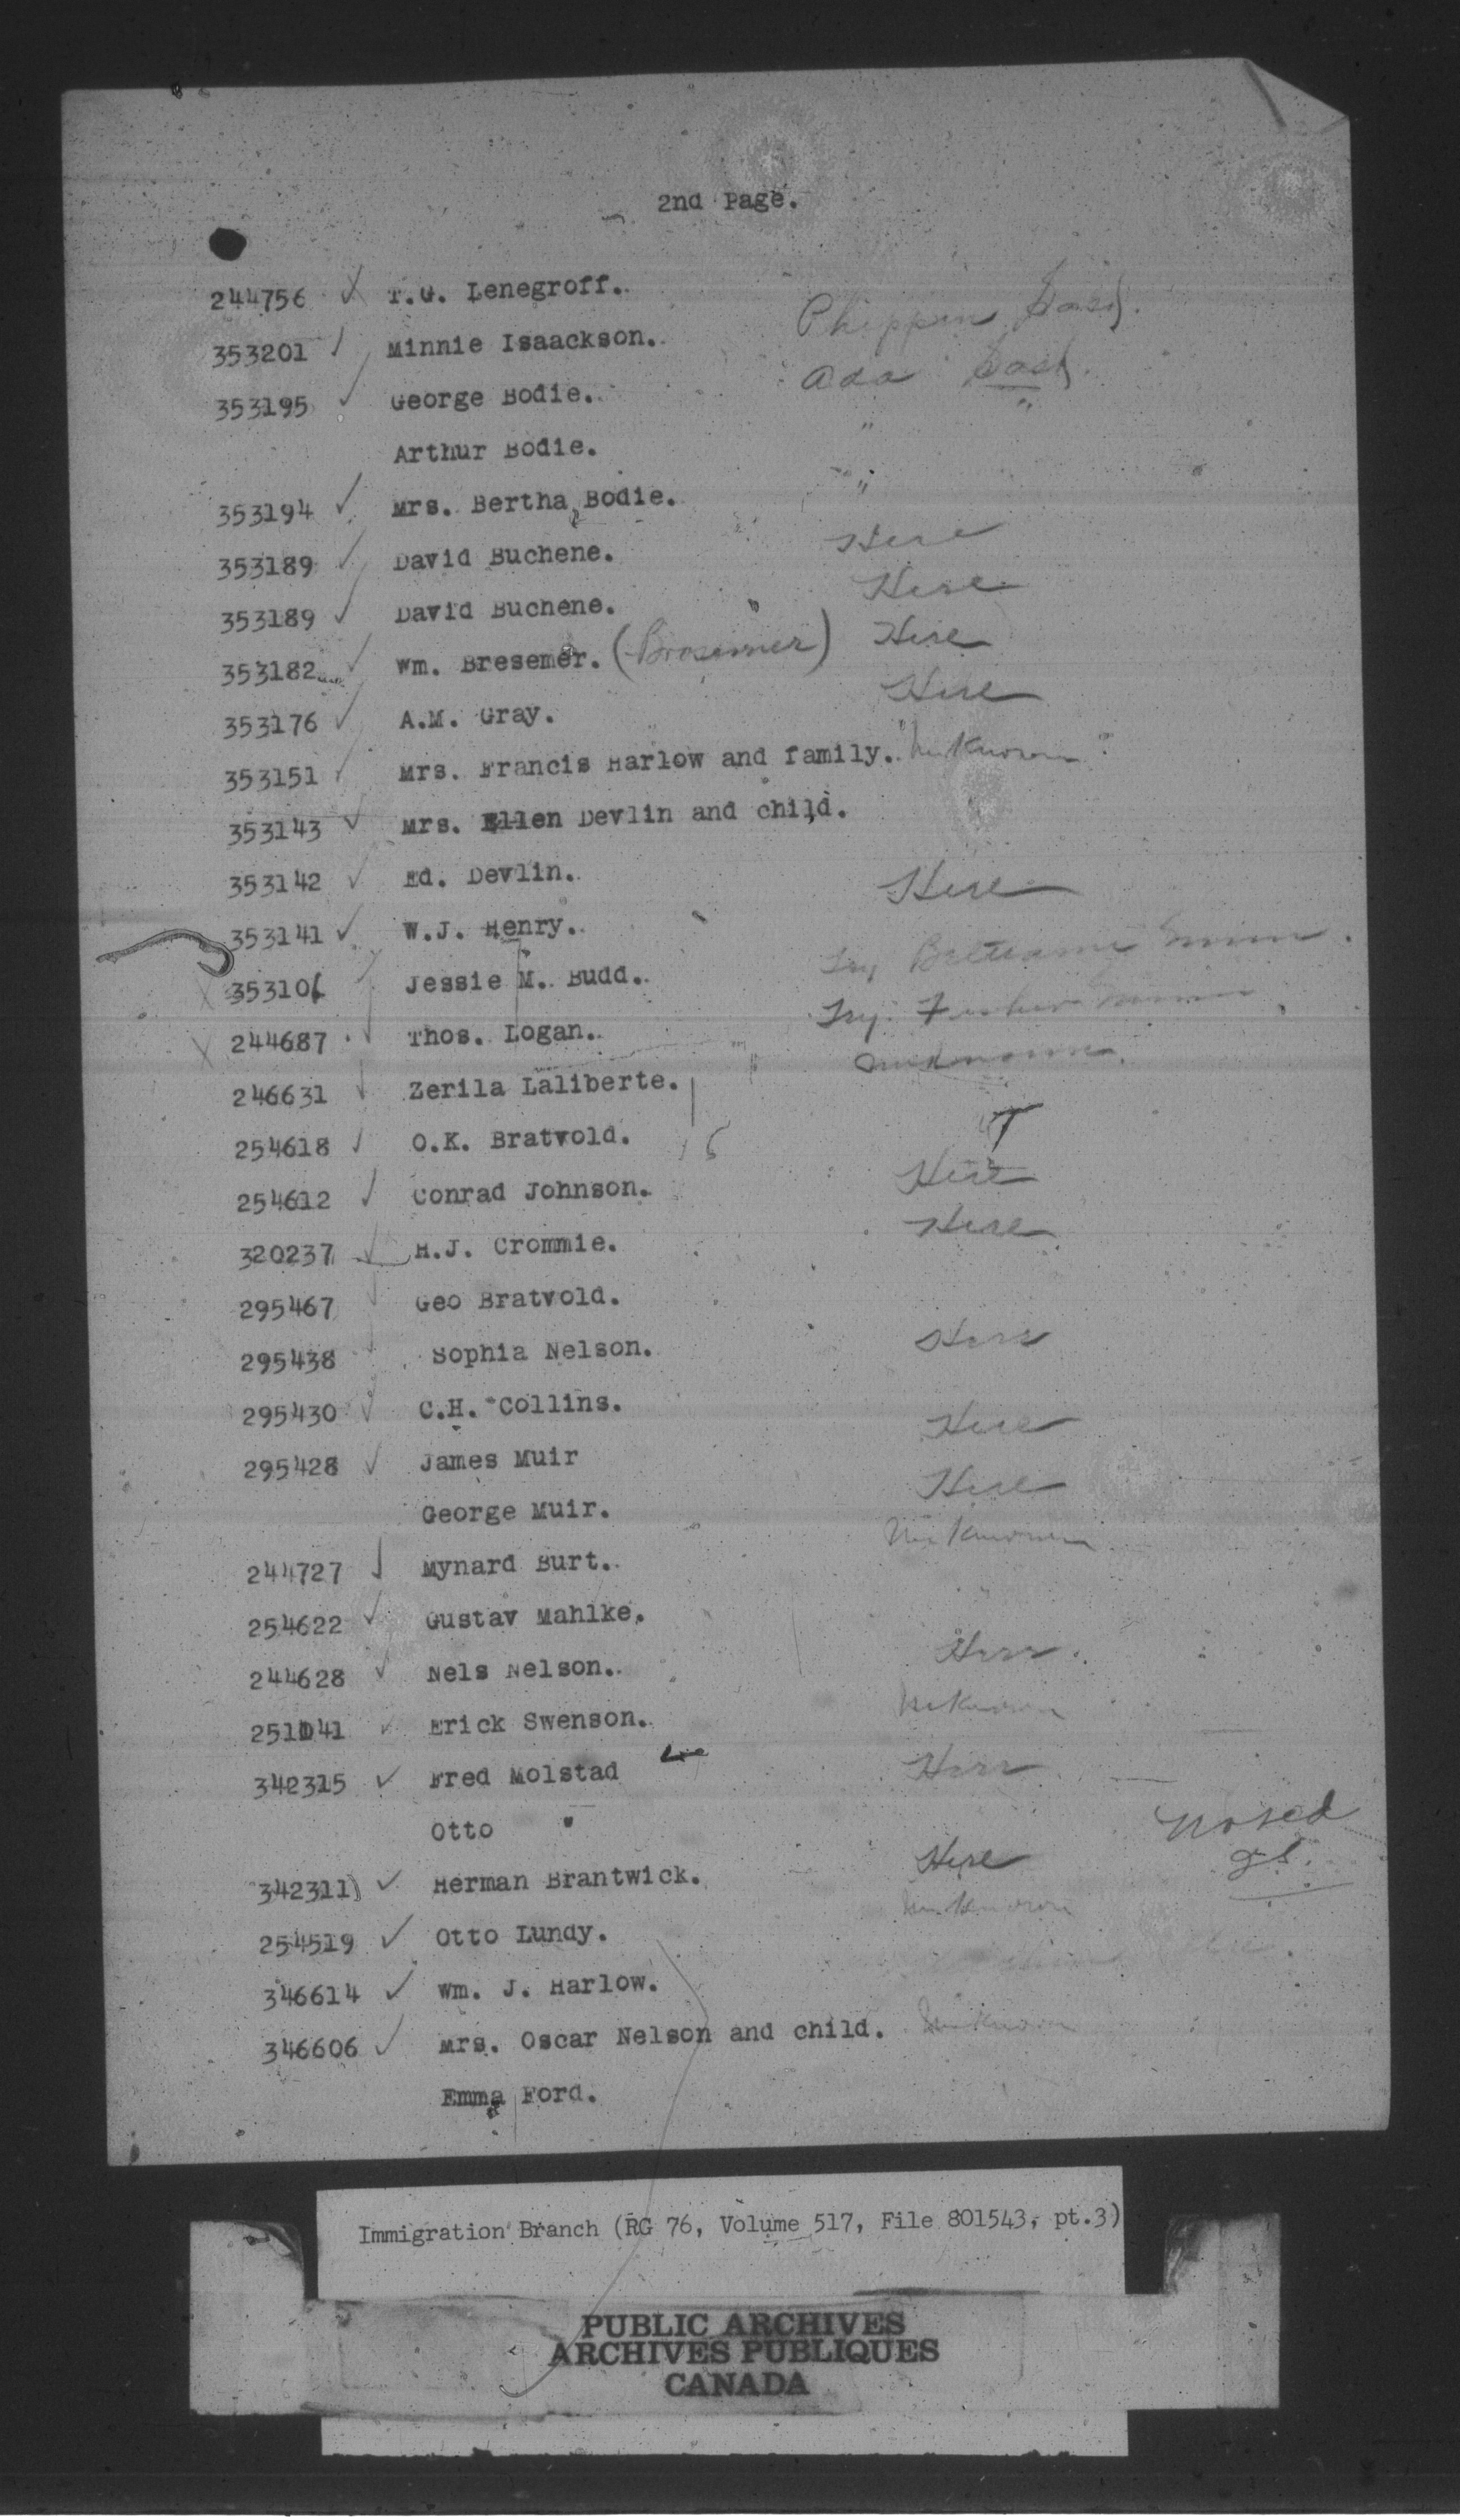 2nd Page.
244756 T.G. Lenegroff.
353201 Minnie Isaackson.
353195 George Bodie. Ada Sask.
Arthur Bodie. " "
353194 Mrs. Bertha Bodie. "
353189 David Buchene. Here
353189 David Buchene. Here
353182 Wm. Bresemer. (Brosemer) Here
353176 A.M. Gray. Here
353151 Mrs. Francis Harlow and family. "Unknown"
353143 Mrs. Ellen Devlin and child.
353142 Ed. Devlin. Here
353141 W.J. Henry.
35310 Jessie M. Budd. Try
244687 Thos. Logan. Try
246631 Zerila Laliberte. Unknown.
254618 O.K. Bratvold.
254612 Conrad Johnson. Here
320237 H.J. Crommie. Here
295467 Geo Bratvold.
295438 Sophia Nelson. Here
295430 C.H. Collins. Here
295428 James Muir Here
George Muir.
244727 Mynard Burt. Unknown
254622 Gustav Mahlke.
244628 Nels Nelson. Here
251041 Erick Swenson. Unknown
342315 Fred Molstad Here
Otto "
Noted
342311 Herman Brantwick. Here
254519 Otto Lundy. Unknown
346614 Wm. J. Harlow.
346606 Mrs. Oscar Nelson and child. Unknown
Emma Ford.
Immigration Branch (RG 76, Volume 517, File 801543, pt.3)
PUBLIC ARCHIVES
ARCHIVES PUBLIQUES
CANADA